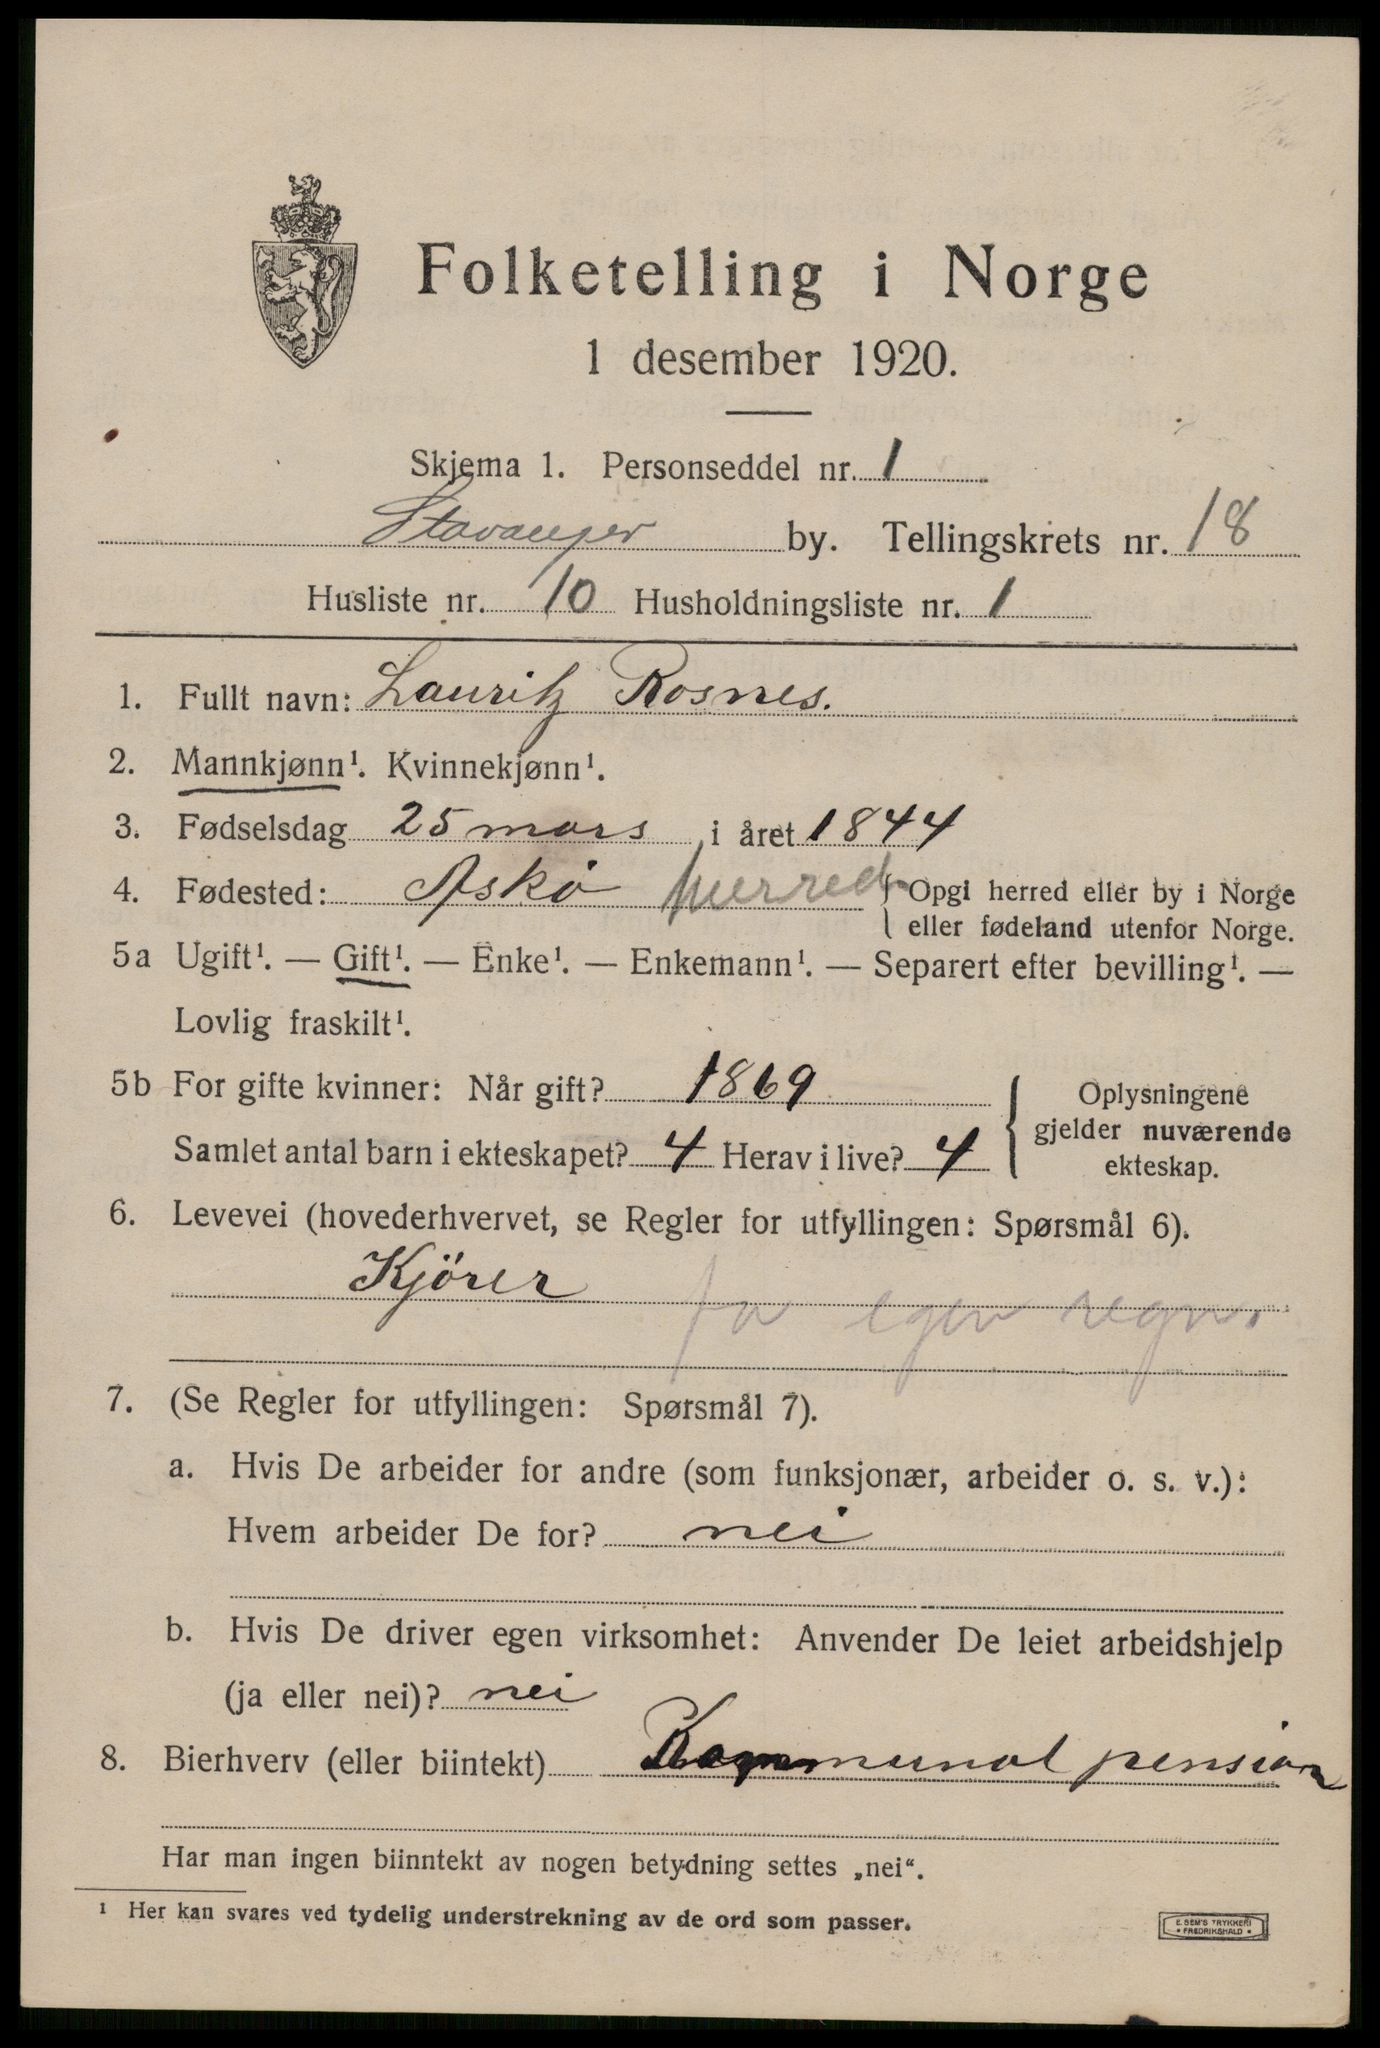 Folketelling i Norge
1 desember 1920.
Skjema 1. Personseddel nr. 1
Stavanger by. Tellingskrets nr. 18
Husliste nr. 10 Husholdningsliste nr. 1
1. Fullt navn: Lauritz Rosnes.
2. Mannkjønn¹. Kvinnekjønn¹.
3. Fødselsdag 25 mars i året 1844
4. Fødested: Askø herred { Opgi herred eller by i Norge
eller fødeland utenfor Norge.
5a Ugift¹. — Gift¹. — Enke¹. — Enkemann¹. — Separert efter bevilling¹. —
Lovlig fraskilt¹.
5b For gifte kvinner: Når gift? 1869
Samlet antal barn i ekteskapet? 4 Herav i live? 4
{ Oplysningene
gjelder nuværende
ekteskap.
6. Levevei (hovederhvervet, se Regler for utfyllingen: Spørsmål 6).
Kjörer
for egen regn.
7. (Se Regler for utfyllingen: Spørsmål 7).
a. Hvis De arbeider for andre (som funksjonær, arbeider o. s. v.):
Hvem arbeider De for? nei
b. Hvis De driver egen virksomhet: Anvender De leiet arbeidshjelp
(ja eller nei)? nei
8. Bierhverv (eller biintekt) Kommunal pension
Har man ingen biinntekt av nogen betydning settes „nei“.
¹ Her kan svares ved tydelig understrekning av de ord som passer.
E. SEM'S TRYKKERI
• FREDRIKSHALD •